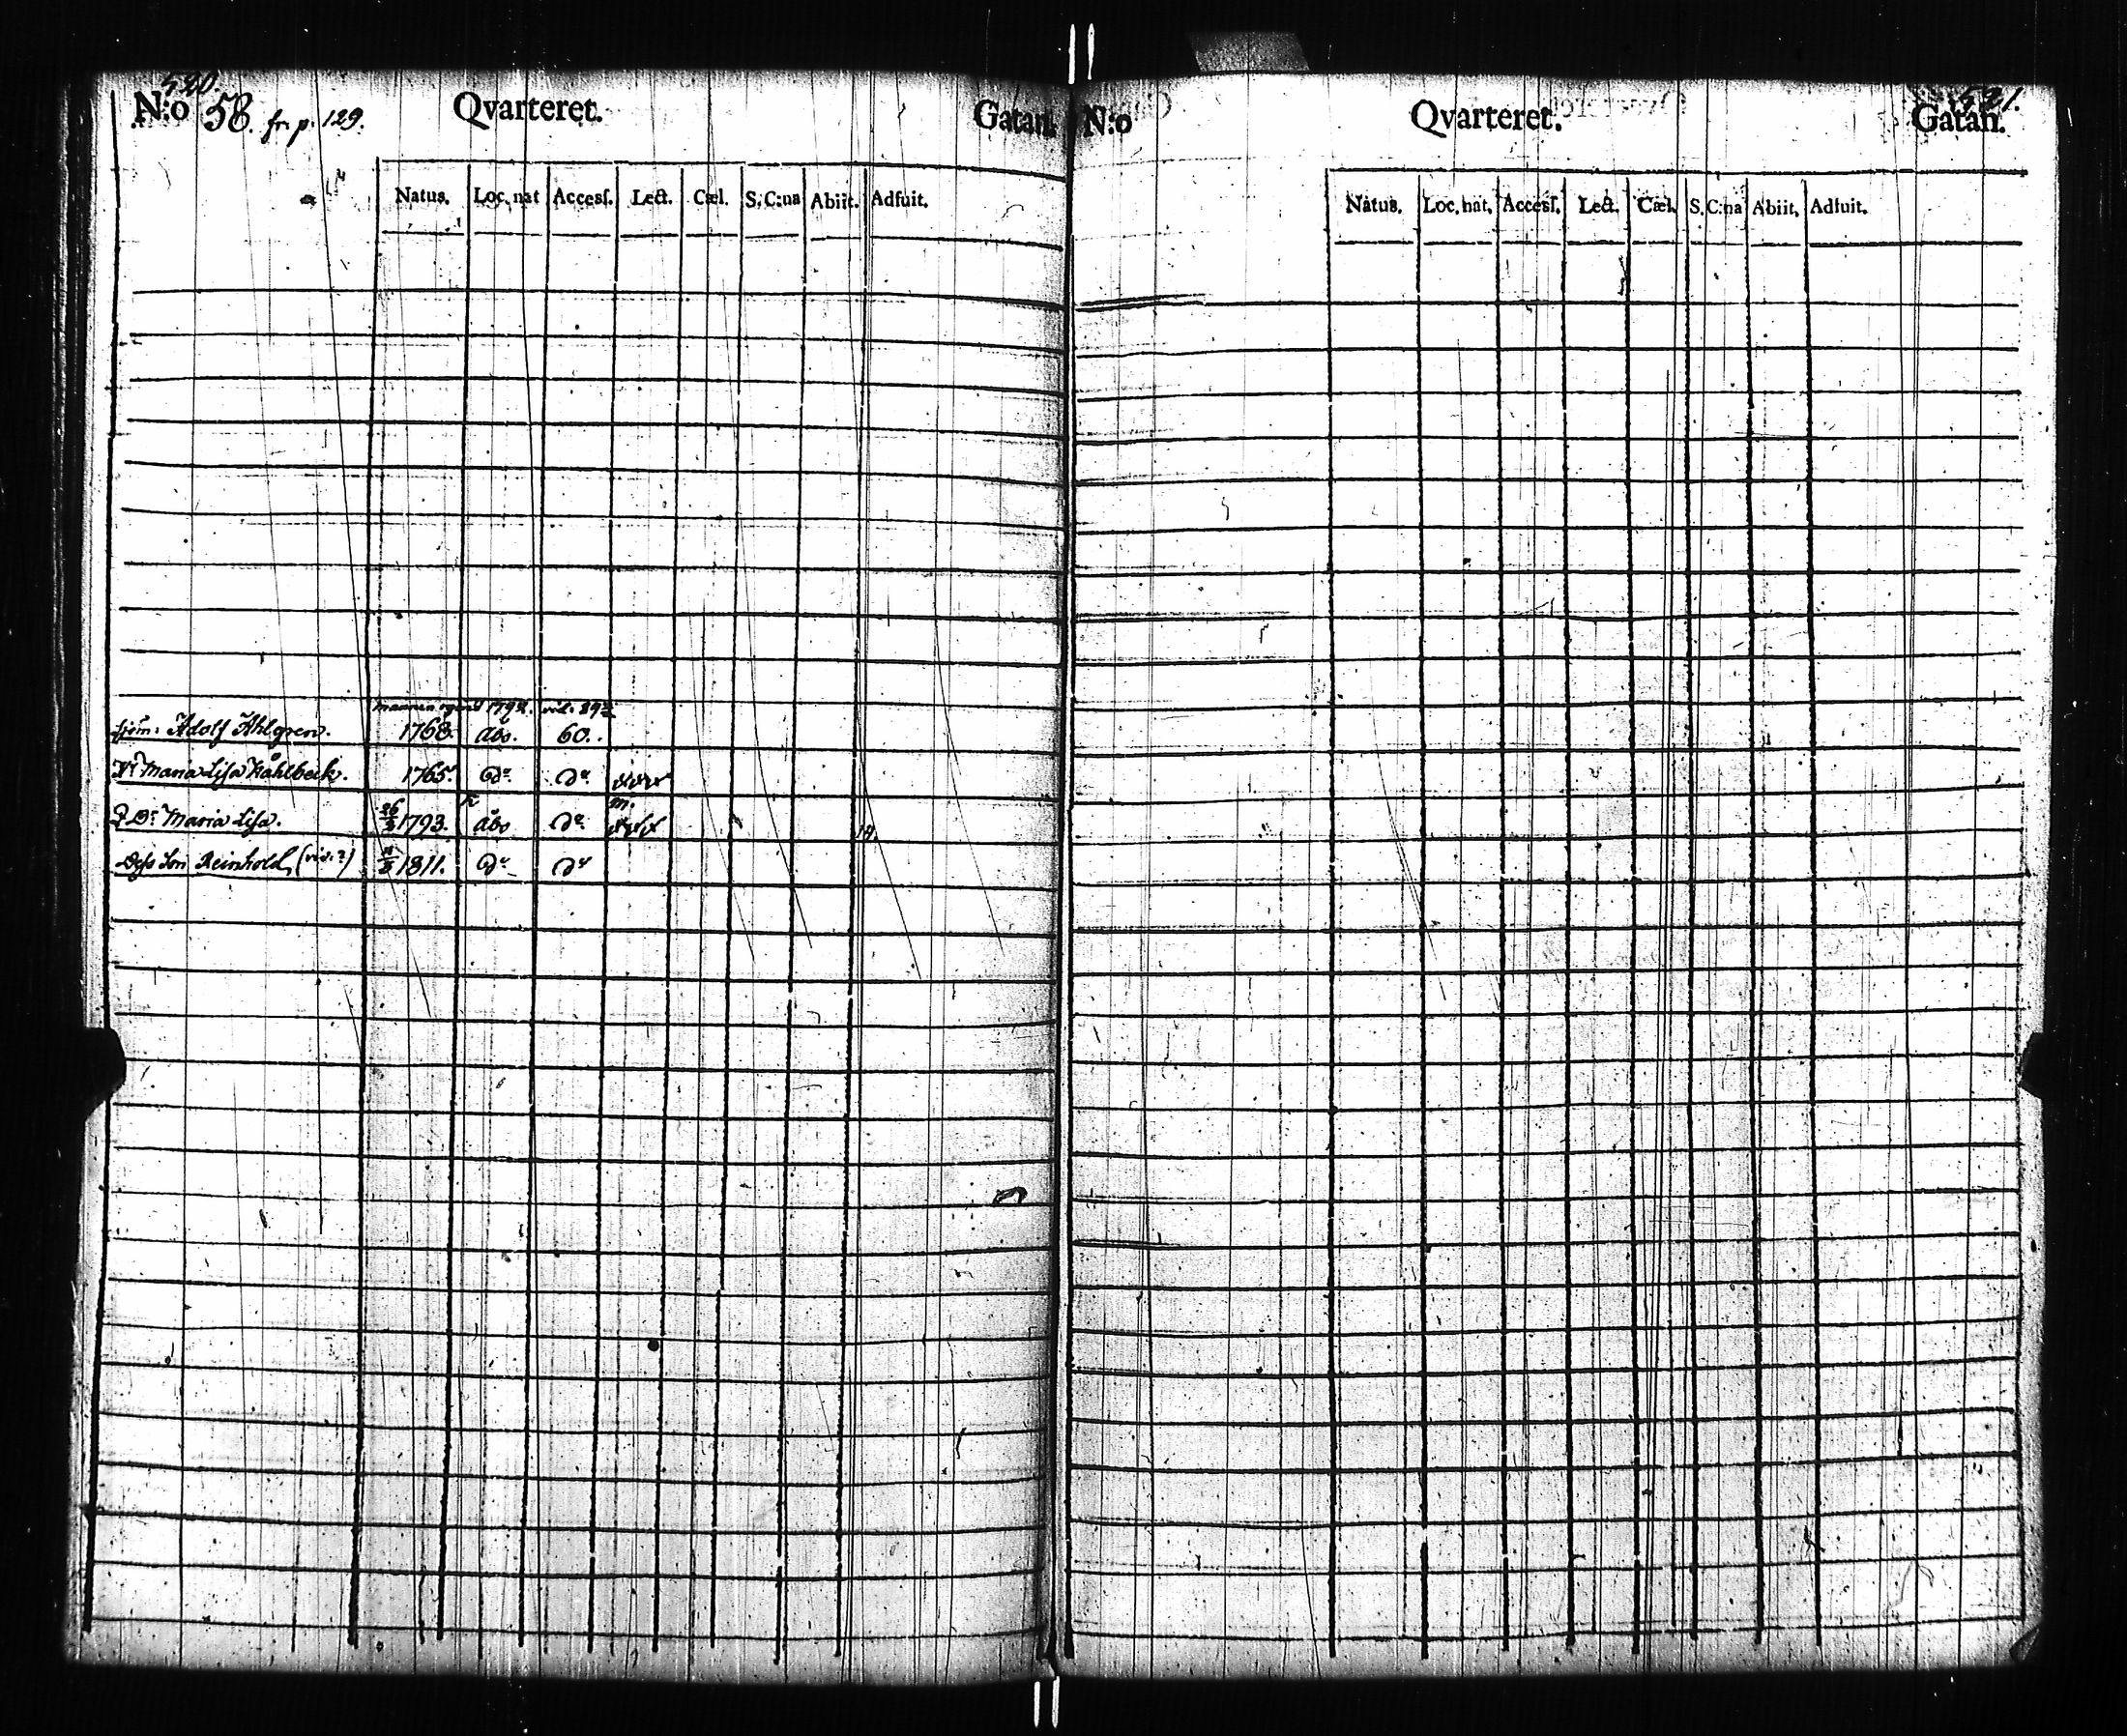 520.
N:o 58. fr. p. 129. Qvarteret. Gatan.
Natus. Loc. nat Accesſ. Lect. Cæl. S. C:na Abiit. Adfuit.
1792. vid. 292
Sjöm: Adolf Ahlgren. 1768. Åbo. 60.
Maria Lisa Wåhlbeck. 1765. do do
Dr Maria Lisa. 26/3 1793. Åbo do m.
Dess Son Reinhold, (vid. 2) 1811. do do
521.
N:o Qvarteret. Gatan.
Natus. Loc. nat. Accesſ. Lect. Cæl. S. C:na Abiit. Adfuit.